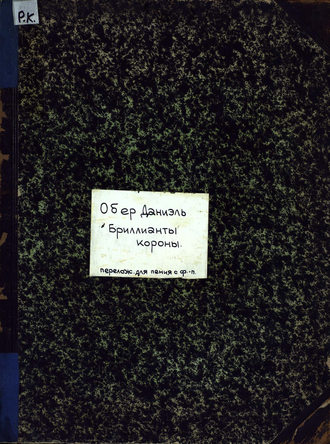 Р.К.
Обер Даниэль
"Бриллианты
короны.
перелож. для пения с ф.-п.